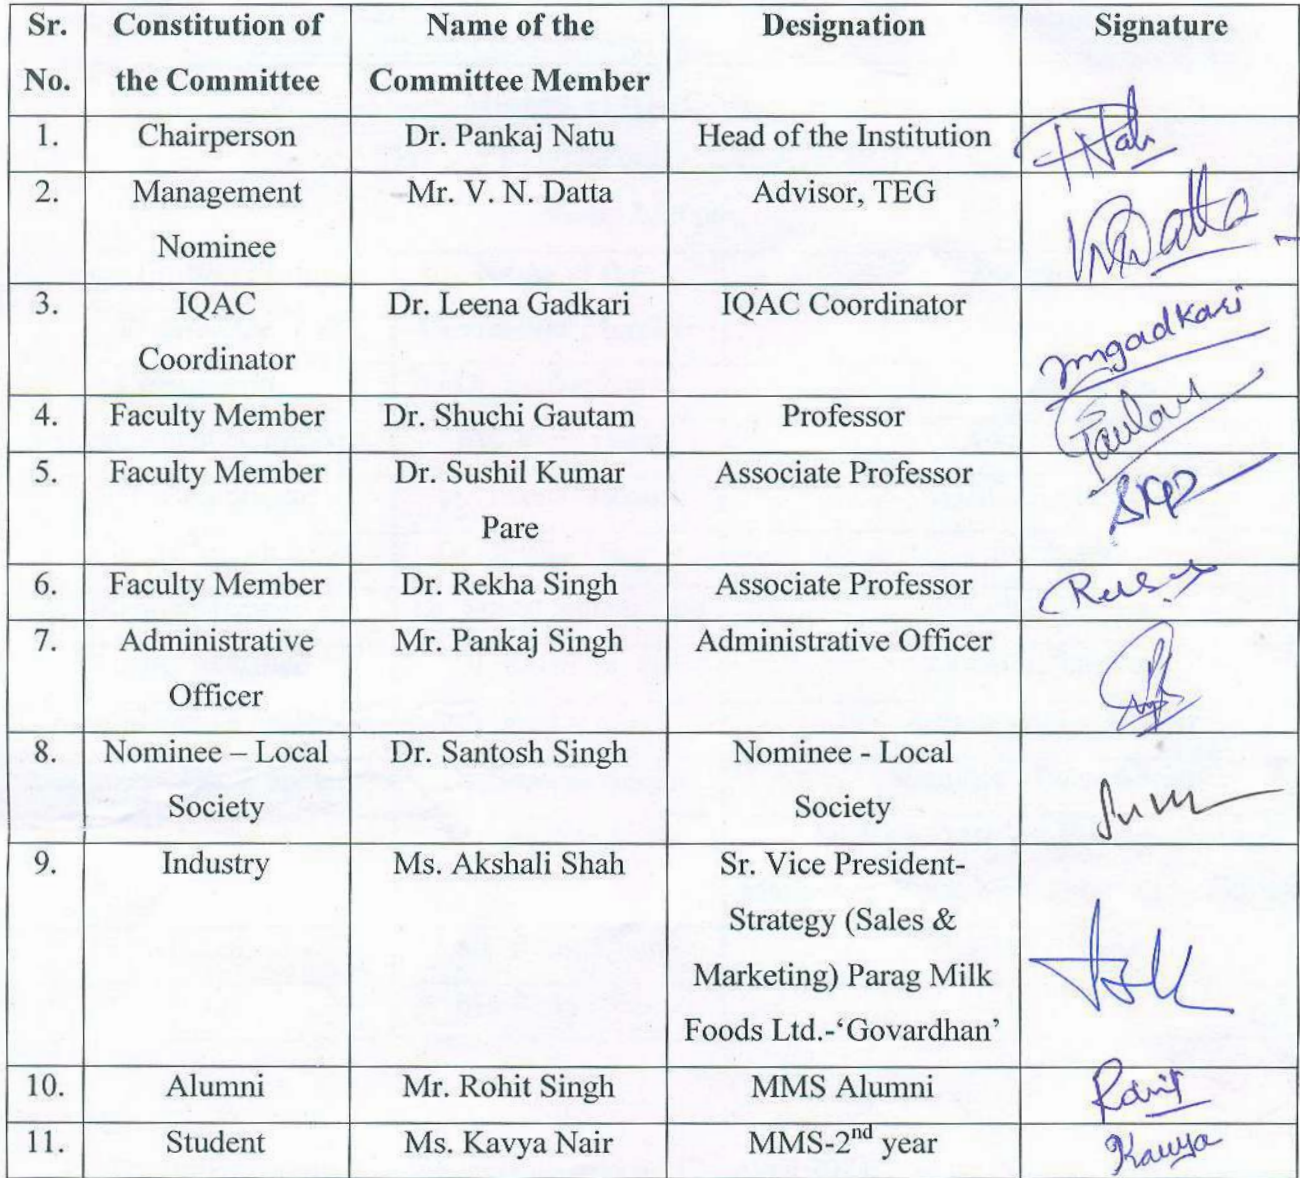 Sr. Constitution of Name of the Designation Signature
No. the Committee Committee Member
1. Chairperson Dr. Pankaj Natu Head of the Institution
2. Management Mr. V. N. Datta Advisor, TEG
Nominee VNDatta
3. IQAC Dr. Leena Gadkari IQAC Coordinator
Coordinator mgadkari
4. Faculty Member Dr. Shuchi Gautam Professor
5. Faculty Member Dr. Sushil Kumar Associate Professor
Pare
6. Faculty Member Dr. Rekha Singh Associate Professor
7. Administrative Mr. Pankaj Singh Administrative Officer
Officer
8. Nominee – Local Dr. Santosh Singh Nominee - Local
Society Society
9. Industry Ms. Akshali Shah Sr. Vice President-
Strategy (Sales &
Marketing) Parag Milk
Foods Ltd.-‘Govardhan’
10. Alumni Mr. Rohit Singh MMS Alumni Rohit
11. Student Ms. Kavya Nair MMS-2nd year Kavya